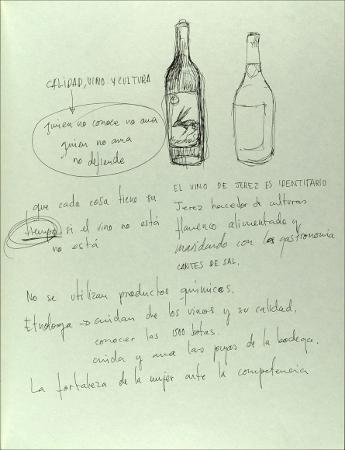 CALIDAD, VINO Y CULTURA
quien no conoce no ama
quien no ama
no defiende
que cada cosa tiene su
tiempo si el vino no está
no está
EL VINO DE JEREZ ES IDENTITARIO
Jerez hacedor de culturas
flamenco alimentado y
maridando con la gastronomía
CANTES DE SAL.
No se utilizan productos químicos.
Enóloga → cuidan de los vinos y su calidad.
conocer las 1500 botas.
cuida y ama las joyas de la bodega.
La fortaleza de la mujer ante la competencia